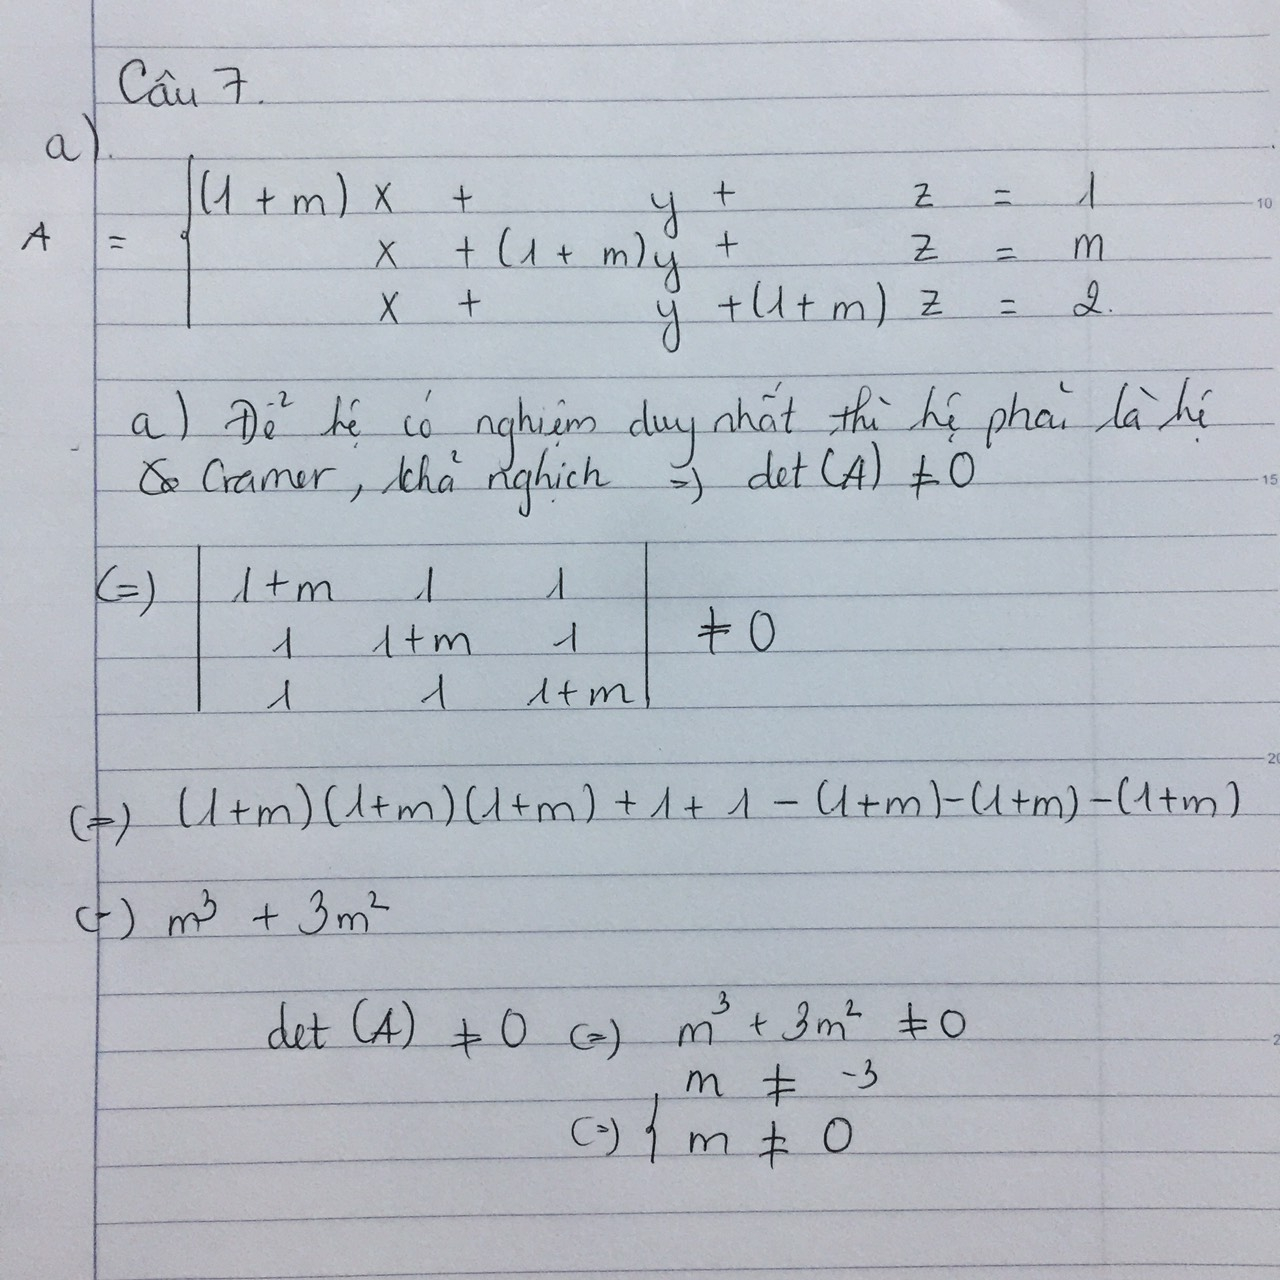 Câu 7.
a).
(1 + m) x + y + z = 1
A = { x + (1 + m) y + z = m
x + y + (1 + m) z = 2.
a) Để hệ có nghiệm duy nhất thì hệ phải là hệ
Cramer, khả nghịch => det (A) ≠ 0
(=) | 1+m 1 1 |
| 1 1+m 1 | ≠ 0
| 1 1 1+m |
(=) (1+m)(1+m)(1+m) + 1 + 1 - (1+m)-(1+m)-(1+m)
(=) m³ + 3m²
det (A) ≠ 0 (=) m³ + 3m² ≠ 0
m ≠ -3
(=) { m ≠ 0
10
15
20
2